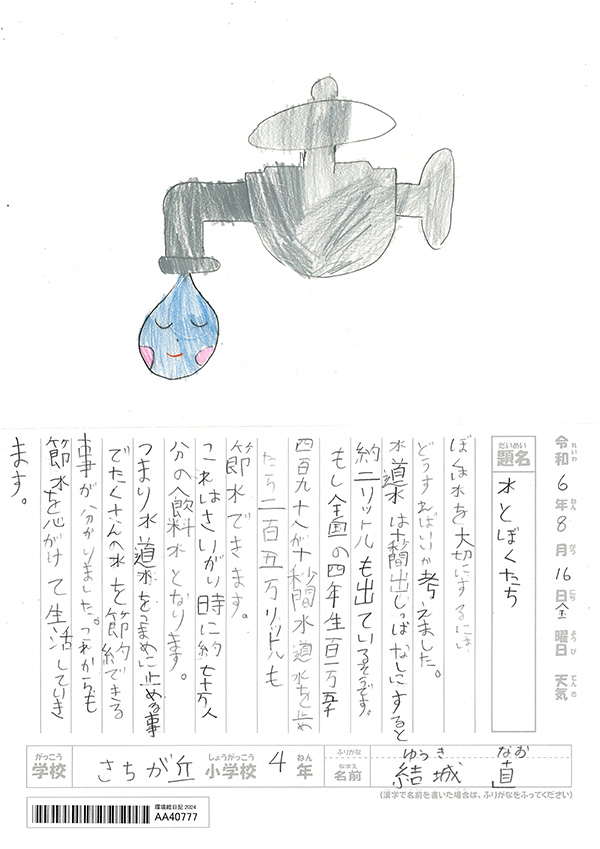 令和6年8月16日金曜日 天気
れいわ ねん がつ にち ようび てんき
だいめい
題名
水とぼくたち
ぼくは水を大切にするには、
どうすればいいか考えました。
水道水は十秒間出しっぱなしにすると
約二リットルも出ているそうです。
もし全国の四年生百一万五千
四百九十人が十秒間水道水を止め
たら二百五万リットルも
節水できます。
これはさいがい時に約七十万人
分の飲料水となります。
つまり水道水をこまめに止める事
でたくさんの水を節約できる
事が分かりました。これからも
節水を心がけて生活していき
ます。
がっこう
学校
さちが丘
しょうがっこう
小学校
4年
ねん
ふりがな
ゆうき なお
なまえ
名前
結城 直
(漢字で名前を書いた場合は、ふりがなをふってください)
環境絵日記 2024
AA40777